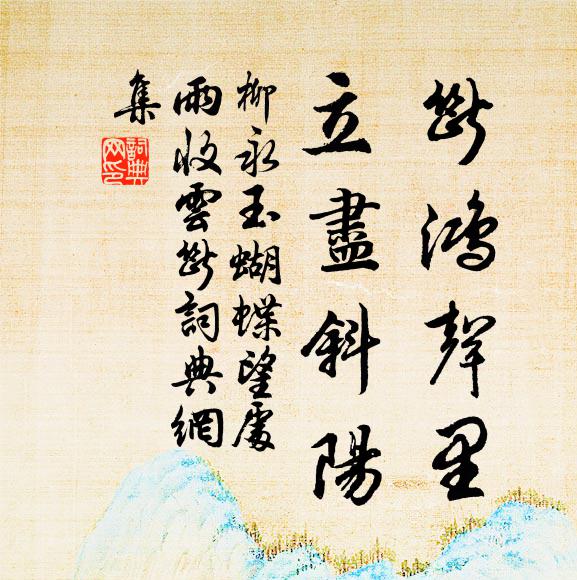 斷鴻聲里
立盡斜陽
柳永玉蝴蝶望處
雨收雲斷詞典網
集
詞典网印